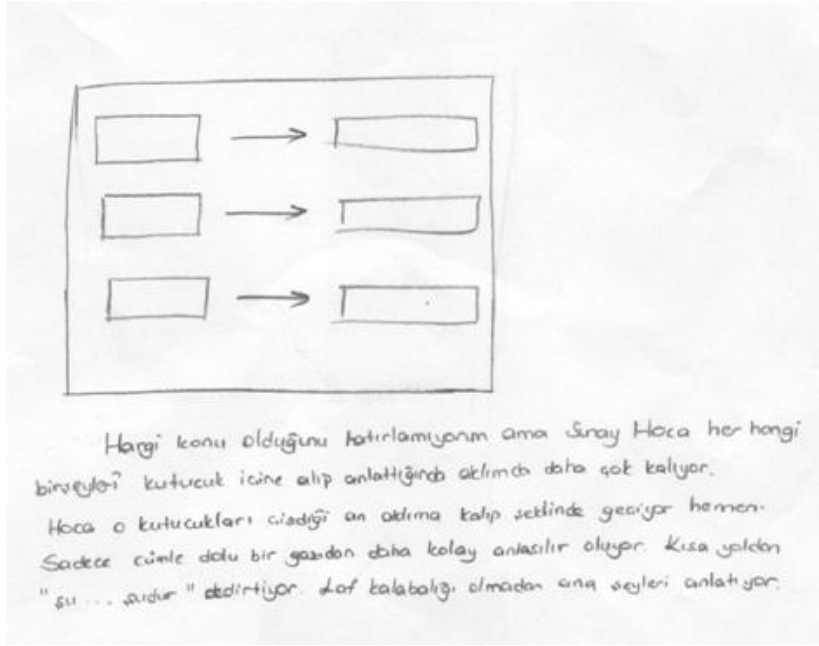 Hangi konu olduğunu hatırlamıyorum ama Sınay Hoca her hangi
birşeyleri kutucuk içine alıp anlattığında aklımda daha çok kalıyor.
Hoca o kutucukları çizdiği an aklıma kalıp şeklinde geçiyor hemen.
Sadece cümle dolu bir yazıdan daha kolay anlaşılır oluyor. Kısa yoldan
"şu ... şudur" dedirtiyor. Laf kalabalığı olmadan ana şeyleri anlatıyor.